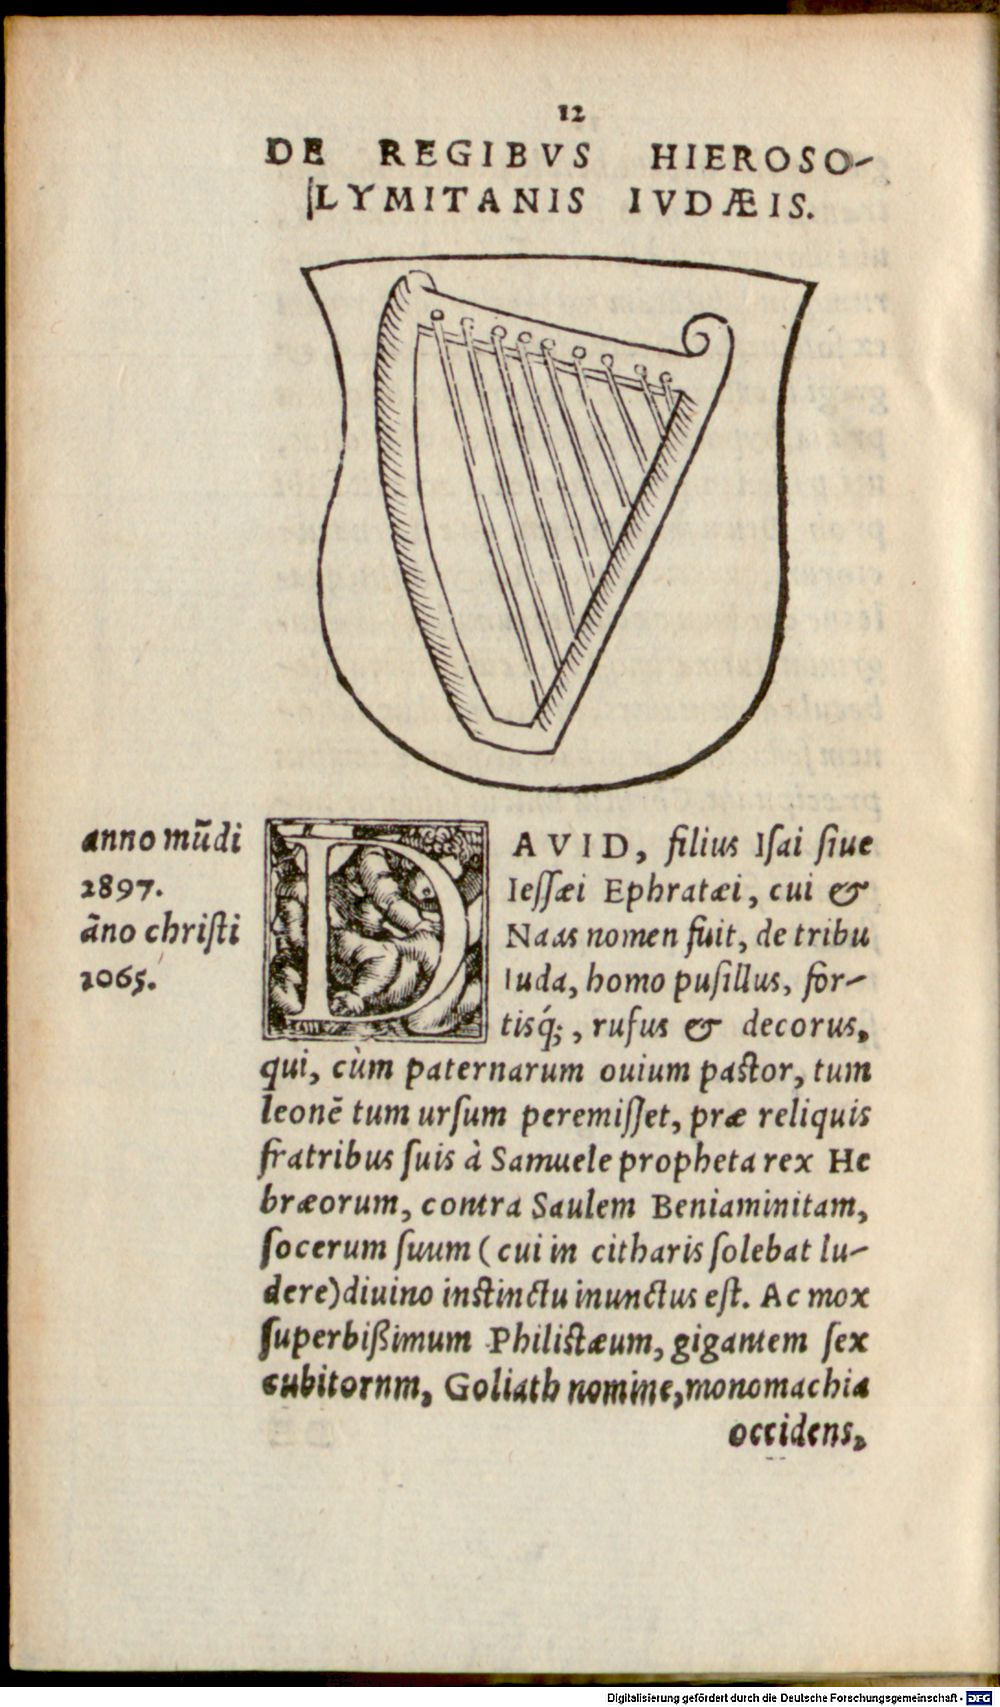 12
DE REGIBVS HIEROSO-
LYMITANIS IVDÆIS.
anno mũdi
2897.
ãno chriſti
2065.
DAVID, filius Iſai ſiue
Ieſſæi Ephratæi, cui &
Naas nomen fuit, de tribu
Iuda, homo puſillus, for-
tisq́;, rufus & decorus,
qui, cùm paternarum ouium paſtor, tum
leonẽ tum urſum peremiſſet, præ reliquis
fratribus ſuis à Samuele propheta rex He
bræorum, contra Saulem Beniaminitam,
ſocerum ſuum (cui in citharis ſolebat lu-
dere) diuino inſtinctu inunctus eſt. Ac mox
ſuperbißimum Philiſtæum, gigantem ſex
cubitornm, Goliath nomine, monomachia
occidens,
Digitalisierung gefördert durch die Deutsche Forschungsgemeinschaft - DFG